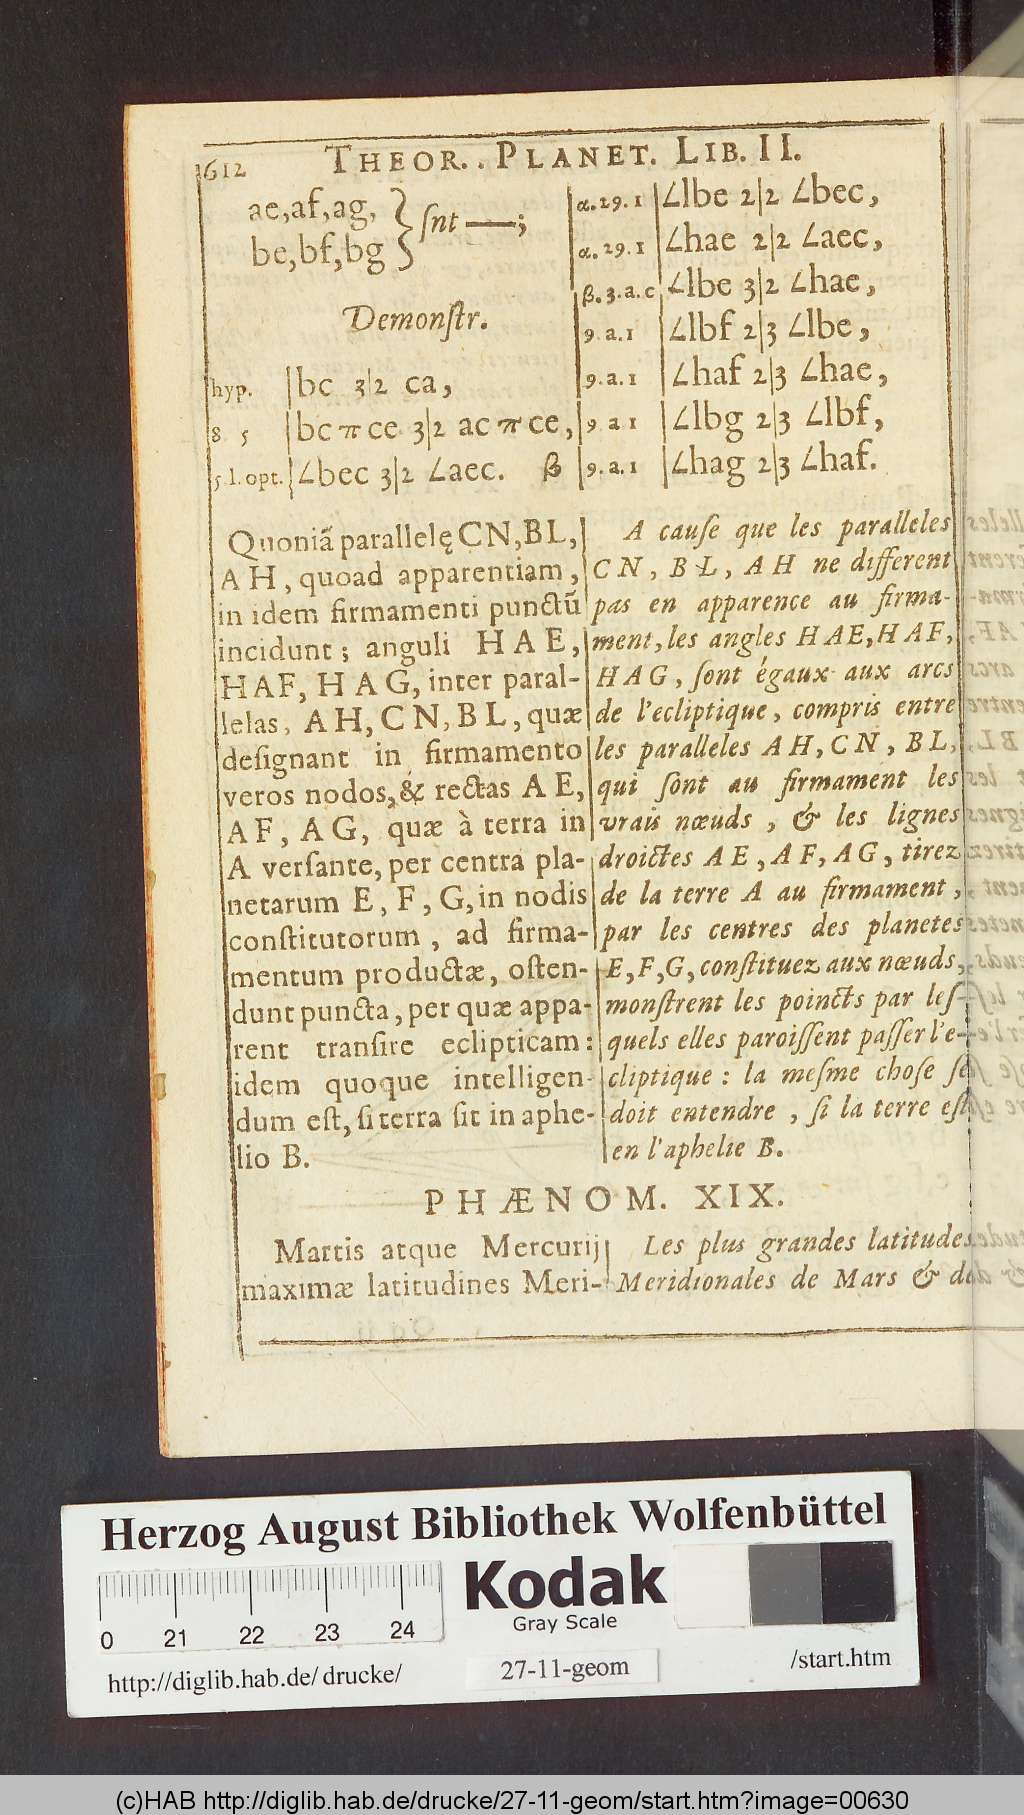 612 THEOR.. PLANET. LIB. II.
ae,af,ag,
be,bf,bg } ſnt —;
Demonſtr.
hyp. | bc 3|2 ca,
8 5 | bc π ce 3|2 ac π ce,
5.l.opt. | ∠bec 3|2 ∠aec. β
α.29.1 | ∠lbe 2|2 ∠bec,
α.29.1 | ∠hae 2|2 ∠aec,
β.3.a.c | ∠lbe 3|2 ∠hae,
9.a.1 | ∠lbf 2|3 ∠lbe,
9.a.1 | ∠haf 2|3 ∠hae,
9 a 1 | ∠lbg 2|3 ∠lbf,
9.a.1 | ∠hag 2|3 ∠haf.
Quoniã parallelę CN, BL,
AH, quoad apparentiam,
in idem firmamenti punctũ
incidunt; anguli HAE,
HAF, HAG, inter paral-
lelas, AH, CN, BL, quæ
deſignant in firmamento
veros nodos, & rectas AE,
AF, AG, quæ à terra in
A verſante, per centra pla-
netarum E, F, G, in nodis
conſtitutorum, ad firma-
mentum productæ, oſten-
dunt puncta, per quæ appa-
rent tranſire eclipticam:
idem quoque intelligen-
dum eſt, ſi terra ſit in aphe-
lio B.
A cauſe que les paralleles
CN, BL, AH ne different
pas en apparence au firma-
ment, les angles HAE, HAF,
HAG, ſont égaux aux arcs
de l'ecliptique, compris entre
les paralleles AH, CN, BL,
qui ſont au firmament les
vrais nœuds, & les lignes
droictes AE, AF, AG, tirez
de la terre A au firmament,
par les centres des planetes
E, F, G, conſtituez aux nœuds,
monſtrent les poincts par leſ-
quels elles paroiſſent paſſer l'e-
cliptique: la meſme choſe ſe
doit entendre, ſi la terre eſt
en l'aphelie B.
PHÆNOM. XIX.
Martis atque Mercurij
maximæ latitudines Meri-
Les plus grandes latitudes
Meridionales de Mars & de
Herzog August Bibliothek Wolfenbüttel
Kodak
Gray Scale
0 21 22 23 24
http://diglib.hab.de/drucke/ 27-11-geom /start.htm
(c)HAB http://diglib.hab.de/drucke/27-11-geom/start.htm?image=00630